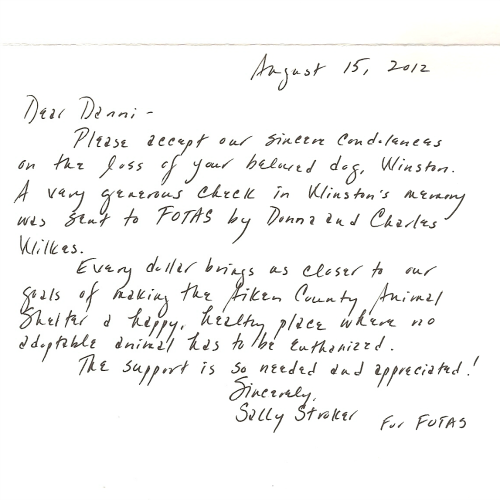 August 15, 2012
Dear Danni -
Please accept our sincere condolences
on the loss of your beloved dog, Winston.
A very generous check in Winston's memory
was sent to FOTAS by Donna and Charles
Wilkes.
Every dollar brings us closer to our
goals of making the Aiken County Animal
Shelter a happy, healthy place where no
adoptable animal has to be euthanized.
The support is so needed and appreciated!
Sincerely,
Sally Stroker
For FOTAS